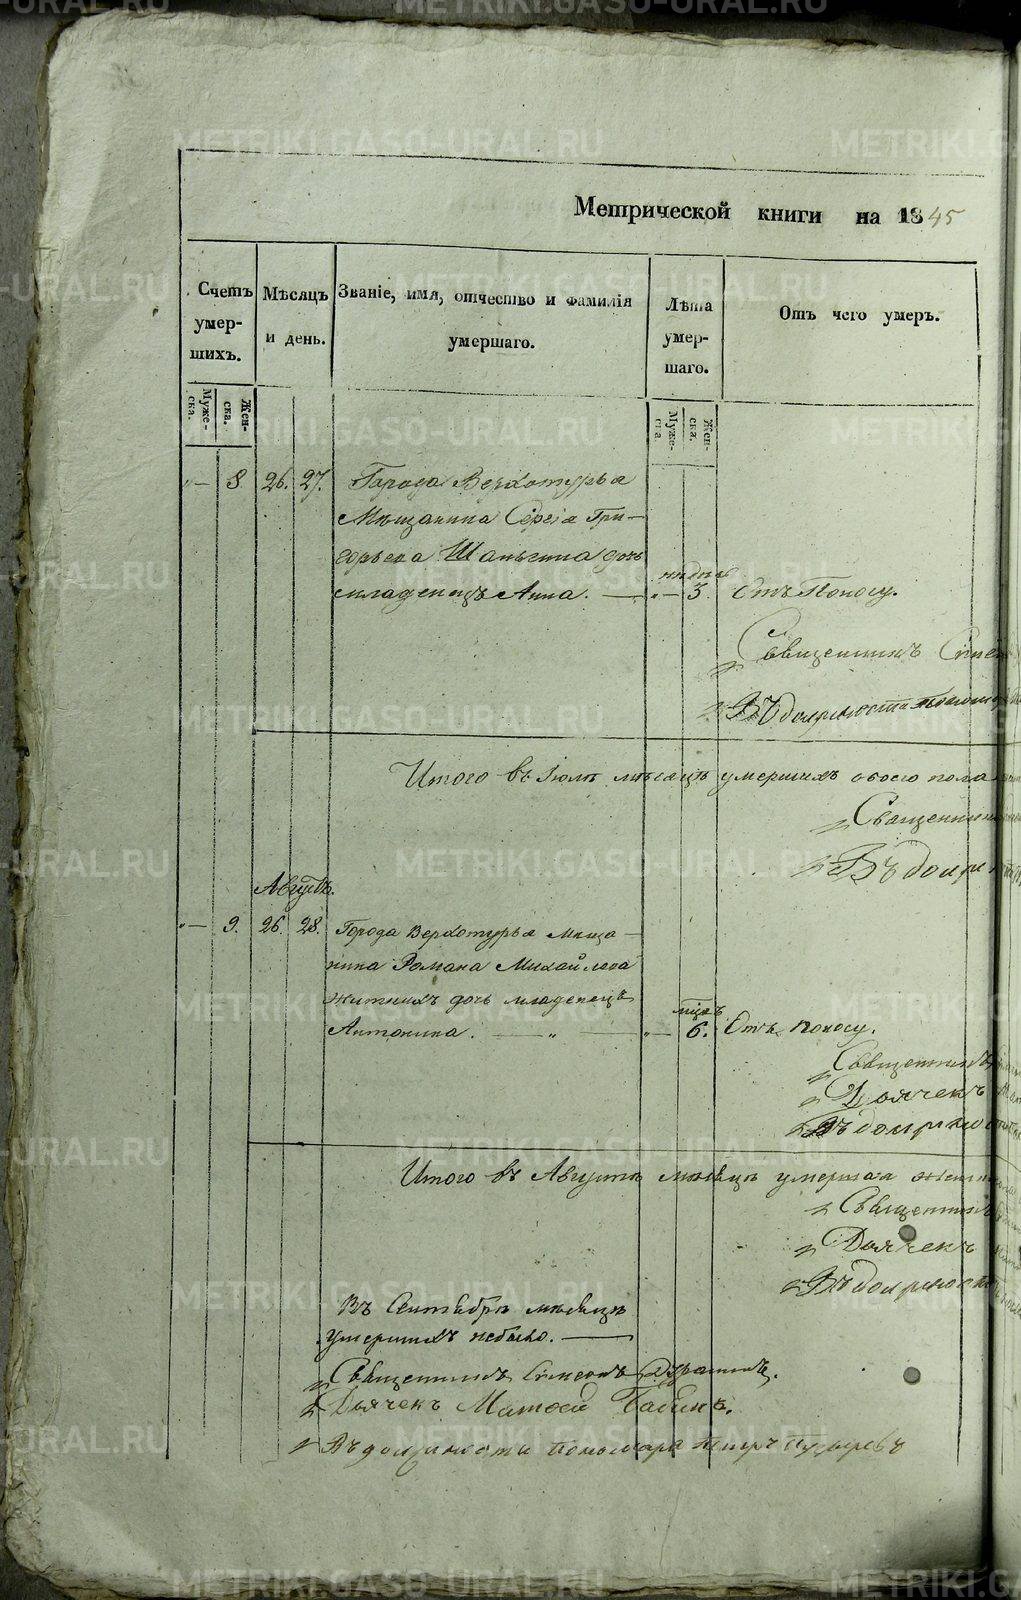 Метрической книги на 1845
Счетъ умер-шихъ.
Мѣсяцъ и день.
Званіе, имя, отчество и фамилія умершаго.
Лѣта умер-шаго.
Отъ чего умеръ.
Муже-ска.
Жен-ска.
Муже-ска
Жен-ска.
"— 8 26. 27. Города Верхотурья
Мѣщанина Сергія Гри-
горьева Шаньгина дочь
младенецъ Анна. — "— 3. Отъ Поносу.
Священникъ
Въ должности
Итого въ Іюлѣ мѣсяцѣ умершихъ обоего пола
Священникъ
Въ
Августъ.
"— 9. 26. 28. Города Верхотурья Мѣща-
нина Романа Михайлова
Житнихъ дочь младенецъ
мцовъ
Антонина. — " — "— 6. Отъ поносу.
Священникъ
Дьячекъ
Въ должности
Итого въ Августѣ мѣсяцѣ умершая
Священникъ
Дьячекъ
Въ должности
Въ Сентябрѣ мѣсяцѣ
умершихъ небыло. —
Священникъ Симеонъ
Дьячекъ Матѳей Бабинъ.
Въ должности Пономаря Петръ Пузыревъ
METRIKI.GASO-URAL.RU